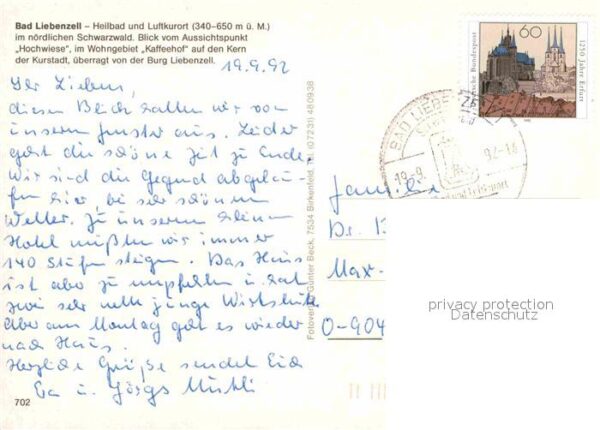 Bad Liebenzell – Heilbad und Luftkurort (340–650 m ü. M.)
im nördlichen Schwarzwald. Blick vom Aussichtspunkt
„Hochwiese“, im Wohngebiet „Kaffeehof“ auf den Kern
der Kurstadt, überragt von der Burg Liebenzell.
19.9.92
Ihr Lieben,
diesen Blick hatten wir von
unserem Fenster aus. Leider
geht die schöne Zeit zu Ende.
Wir sind die Gegend abgelau-
fen hier, bei sehr schönem
Wetter. Zu unserem kleinen
Hotel mußten wir immer
140 Stufen steigen. Das Haus
ist aber zu empfehlen u. hat
zwei sehr nette junge Wirtsleute
Aber am Montag geht es wieder
nach Haus.
Herzliche Grüße sendet Euch
Eva u.
702
Günter Beck, 7534 Birkenfeld, Tel. (07231) 480938
60
Deutsche Bundespost
1250 Jahre Erfurt
BAD LIEBENZELL
19.-9. 92-14
Familie
Dr.
Max-
O-904
privacy protection
Datenschutz